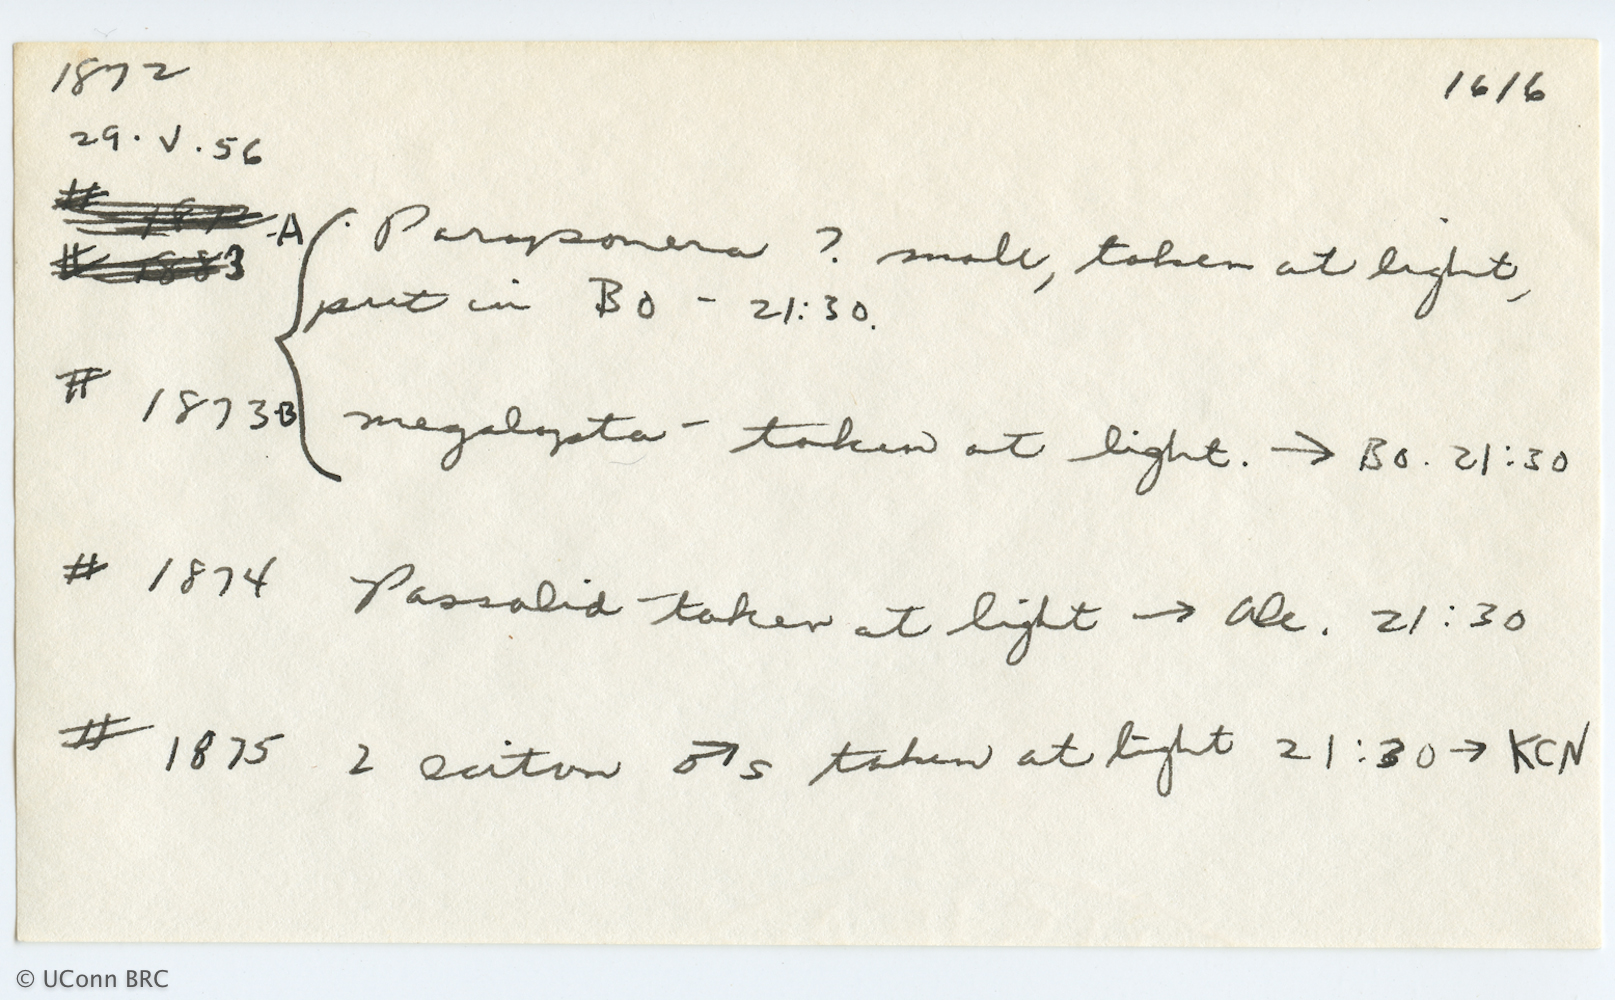 1872
1616
29. V. 56
# 1872-A . Paraponera ? small, taken at light,
# 1883 put in BO - 21:30.
# 1873-B megalopta - taken at light. → BO. 21:30
# 1874 Passalid - taken at light → alc. 21:30
# 1875 2 eciton ♂s taken at light 21:30 → KCN
© UConn BRC